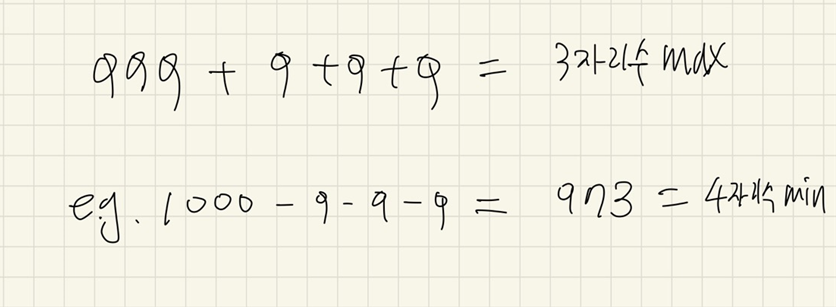 999 + 9+9+9 = 3자리수 max
eg. 1000 - 9 - 9 - 9 = 973 = 4자리수 min